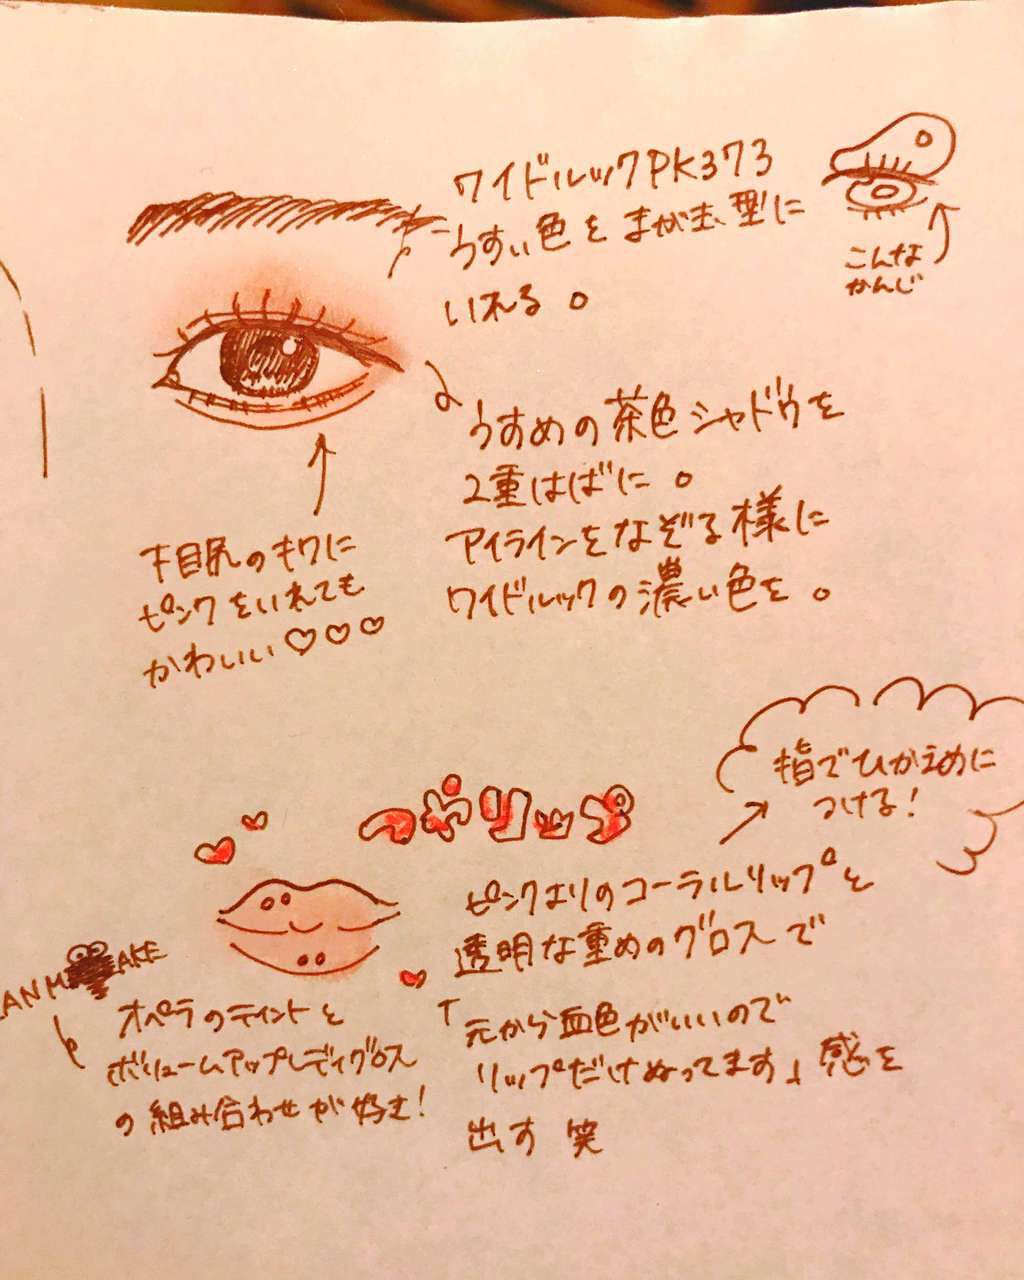 ワイドルックPK373
うすい色をまがま型に
いれる。
こんな
かんじ
うすめの茶色シャドウを
2重はばに。
アイラインをなぞる様に
ワイドルックの濃い色を。
下目尻のキワに
ピンクをいれても
かわいい♡♡♡
つやリップ
指でひかえめに
つける!
ピンクよりのコーラルリップと
透明な重めのグロスで
「元から血色がいいので
リップだけぬってます」感を
出す 笑
ANMAKE
オペラのティントと
ボリュームアップレディグロス
の組み合わせが好き!